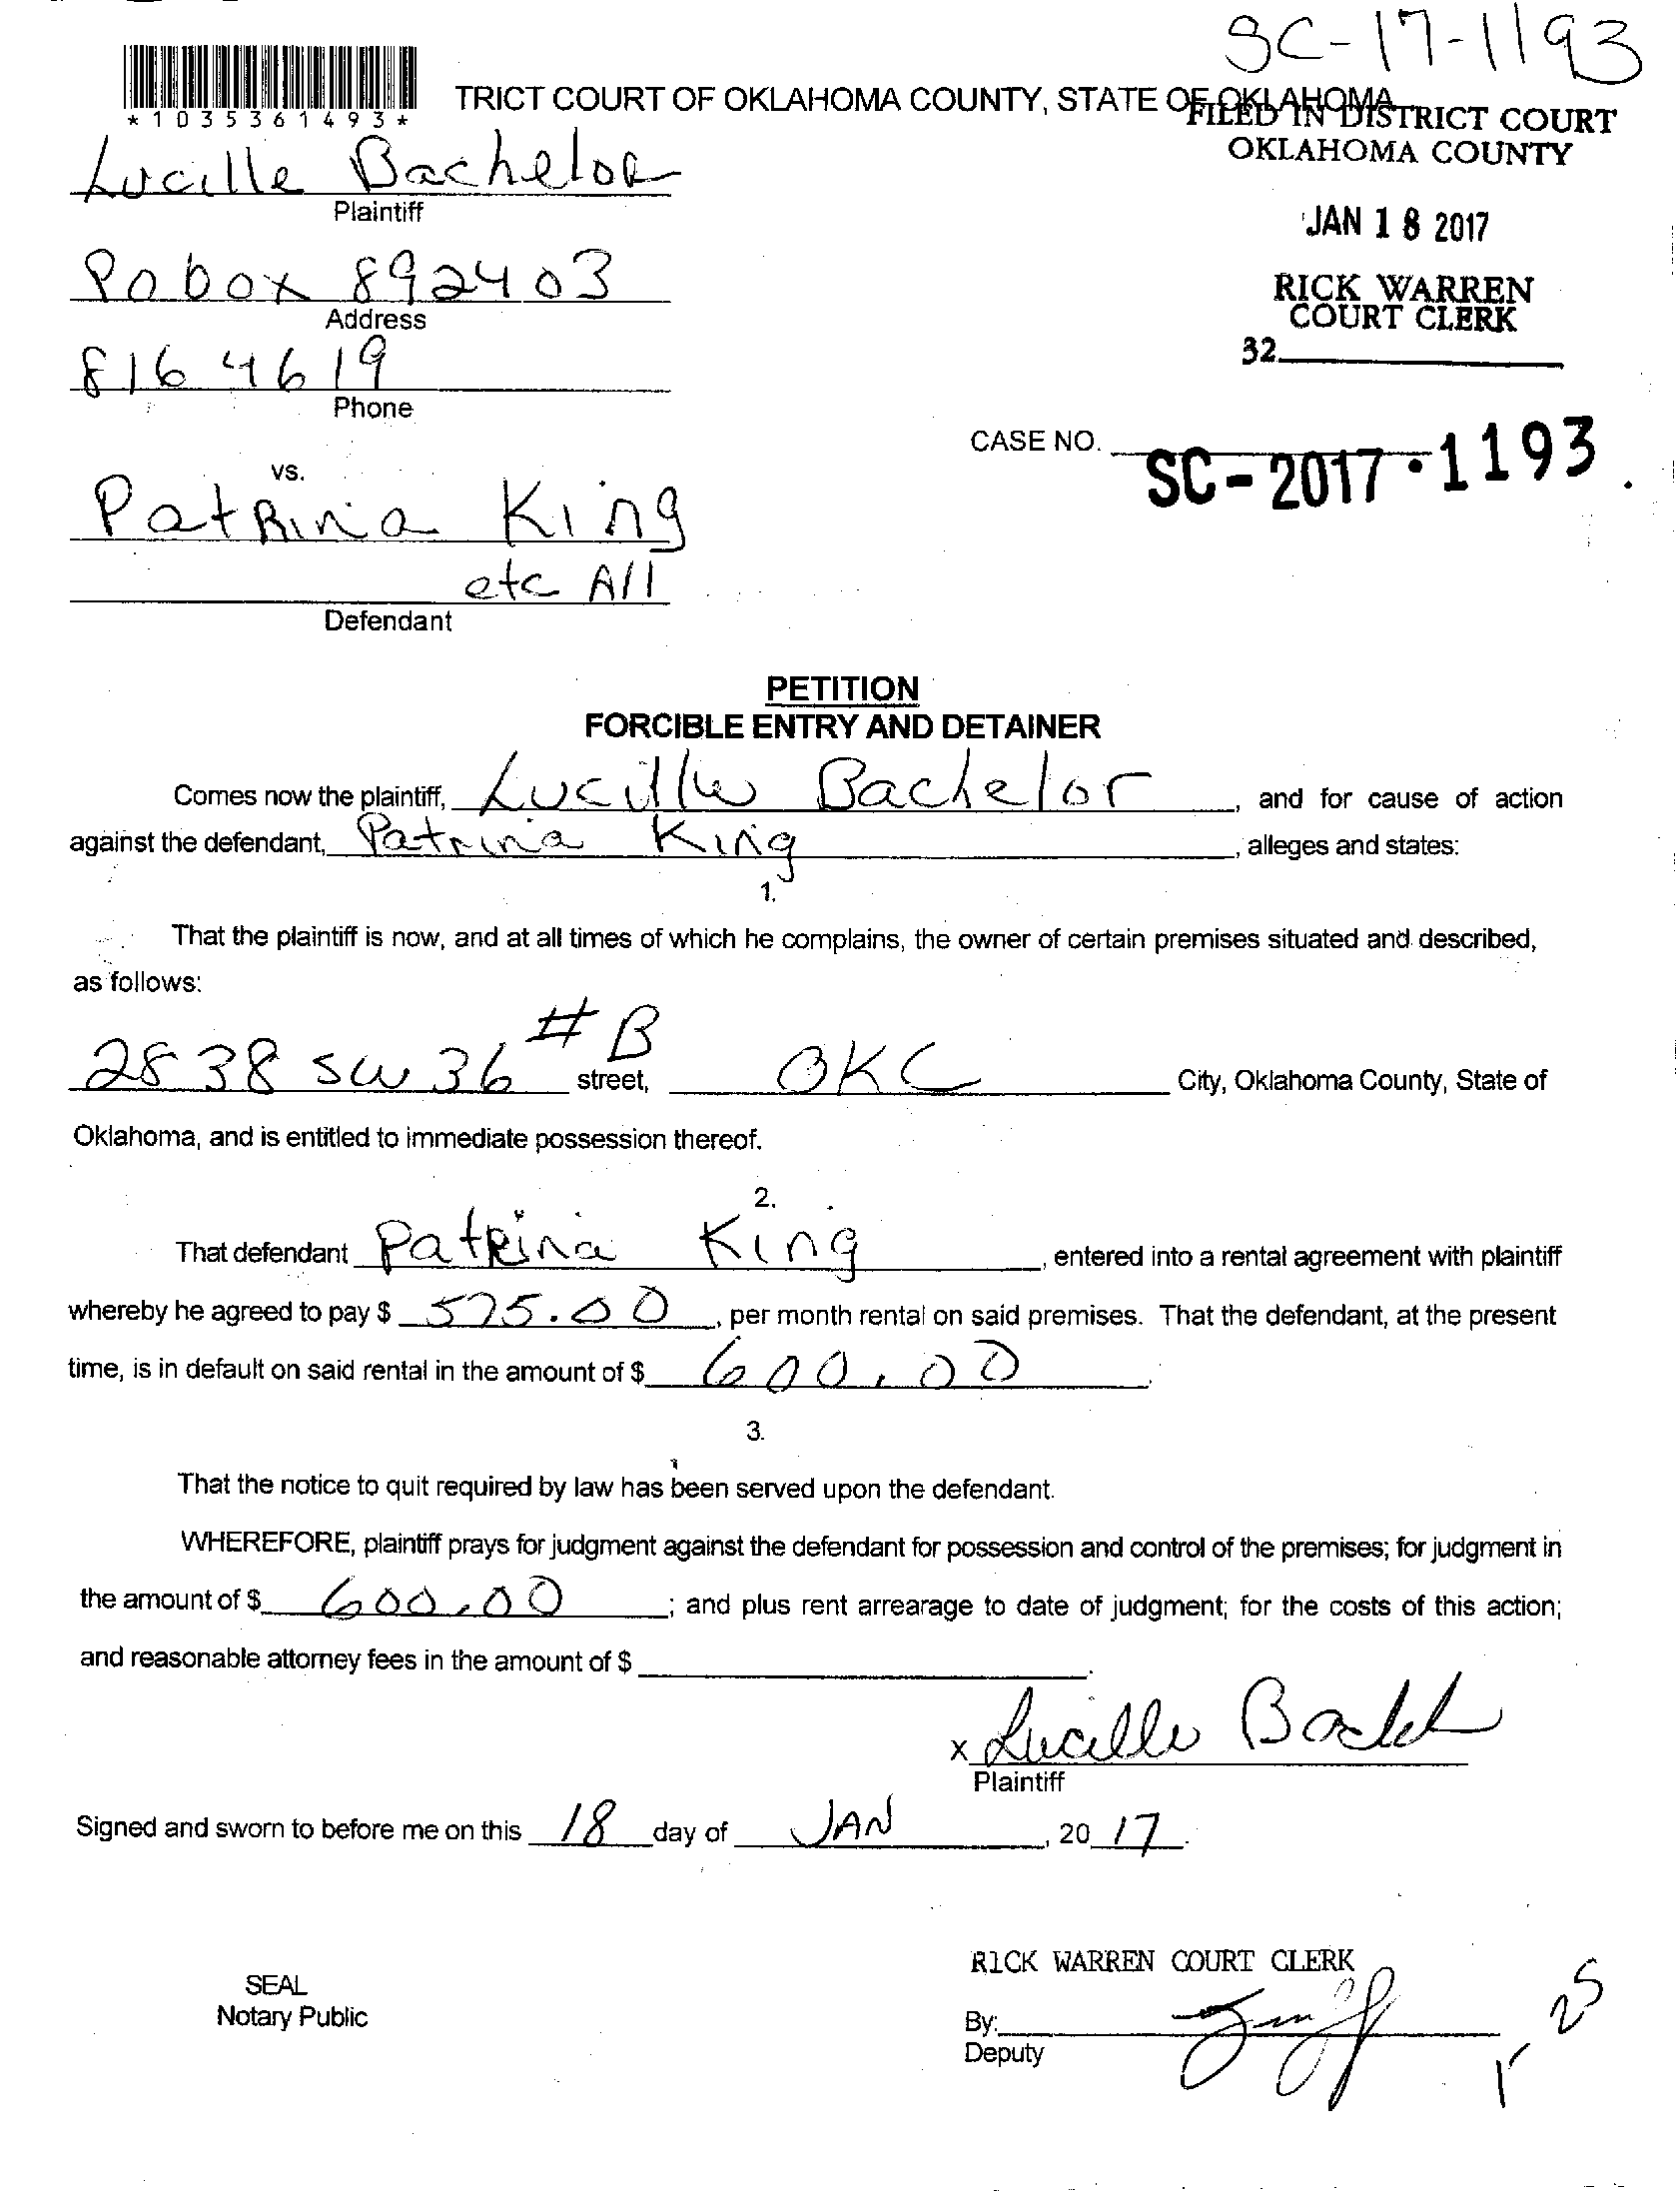 SC-17-1193
*1035361493*
TRICT COURT OF OKLAHOMA COUNTY, STATE OF OKLAHOMA
FILED IN DISTRICT COURT
OKLAHOMA COUNTY
Lucille Bachelor
Plaintiff
JAN 18 2017
Pobox 892403
Address
RICK WARREN
COURT CLERK
32
816 4619
Phone
CASE NO. SC-2017-1193
vs.
Patrina King
etc All
Defendant
PETITION
FORCIBLE ENTRY AND DETAINER
Comes now the plaintiff, Lucille Bachelor, and for cause of action
against the defendant, Patrina King, alleges and states:
1.
That the plaintiff is now, and at all times of which he complains, the owner of certain premises situated and described,
as follows:
2838 SW 36 #B street, OKC City, Oklahoma County, State of
Oklahoma, and is entitled to immediate possession thereof.
2.
That defendant Patrina King, entered into a rental agreement with plaintiff
whereby he agreed to pay $ 575.00, per month rental on said premises. That the defendant, at the present
time, is in default on said rental in the amount of $ 600.00.
3.
That the notice to quit required by law has been served upon the defendant.
WHEREFORE, plaintiff prays for judgment against the defendant for possession and control of the premises; for judgment in
the amount of $ 600.00; and plus rent arrearage to date of judgment; for the costs of this action;
and reasonable attorney fees in the amount of $.
x Lucille
Plaintiff
Signed and sworn to before me on this 18 day of JAN, 20 17.
RICK WARREN COURT CLERK
SEAL
Notary Public
By:
Deputy